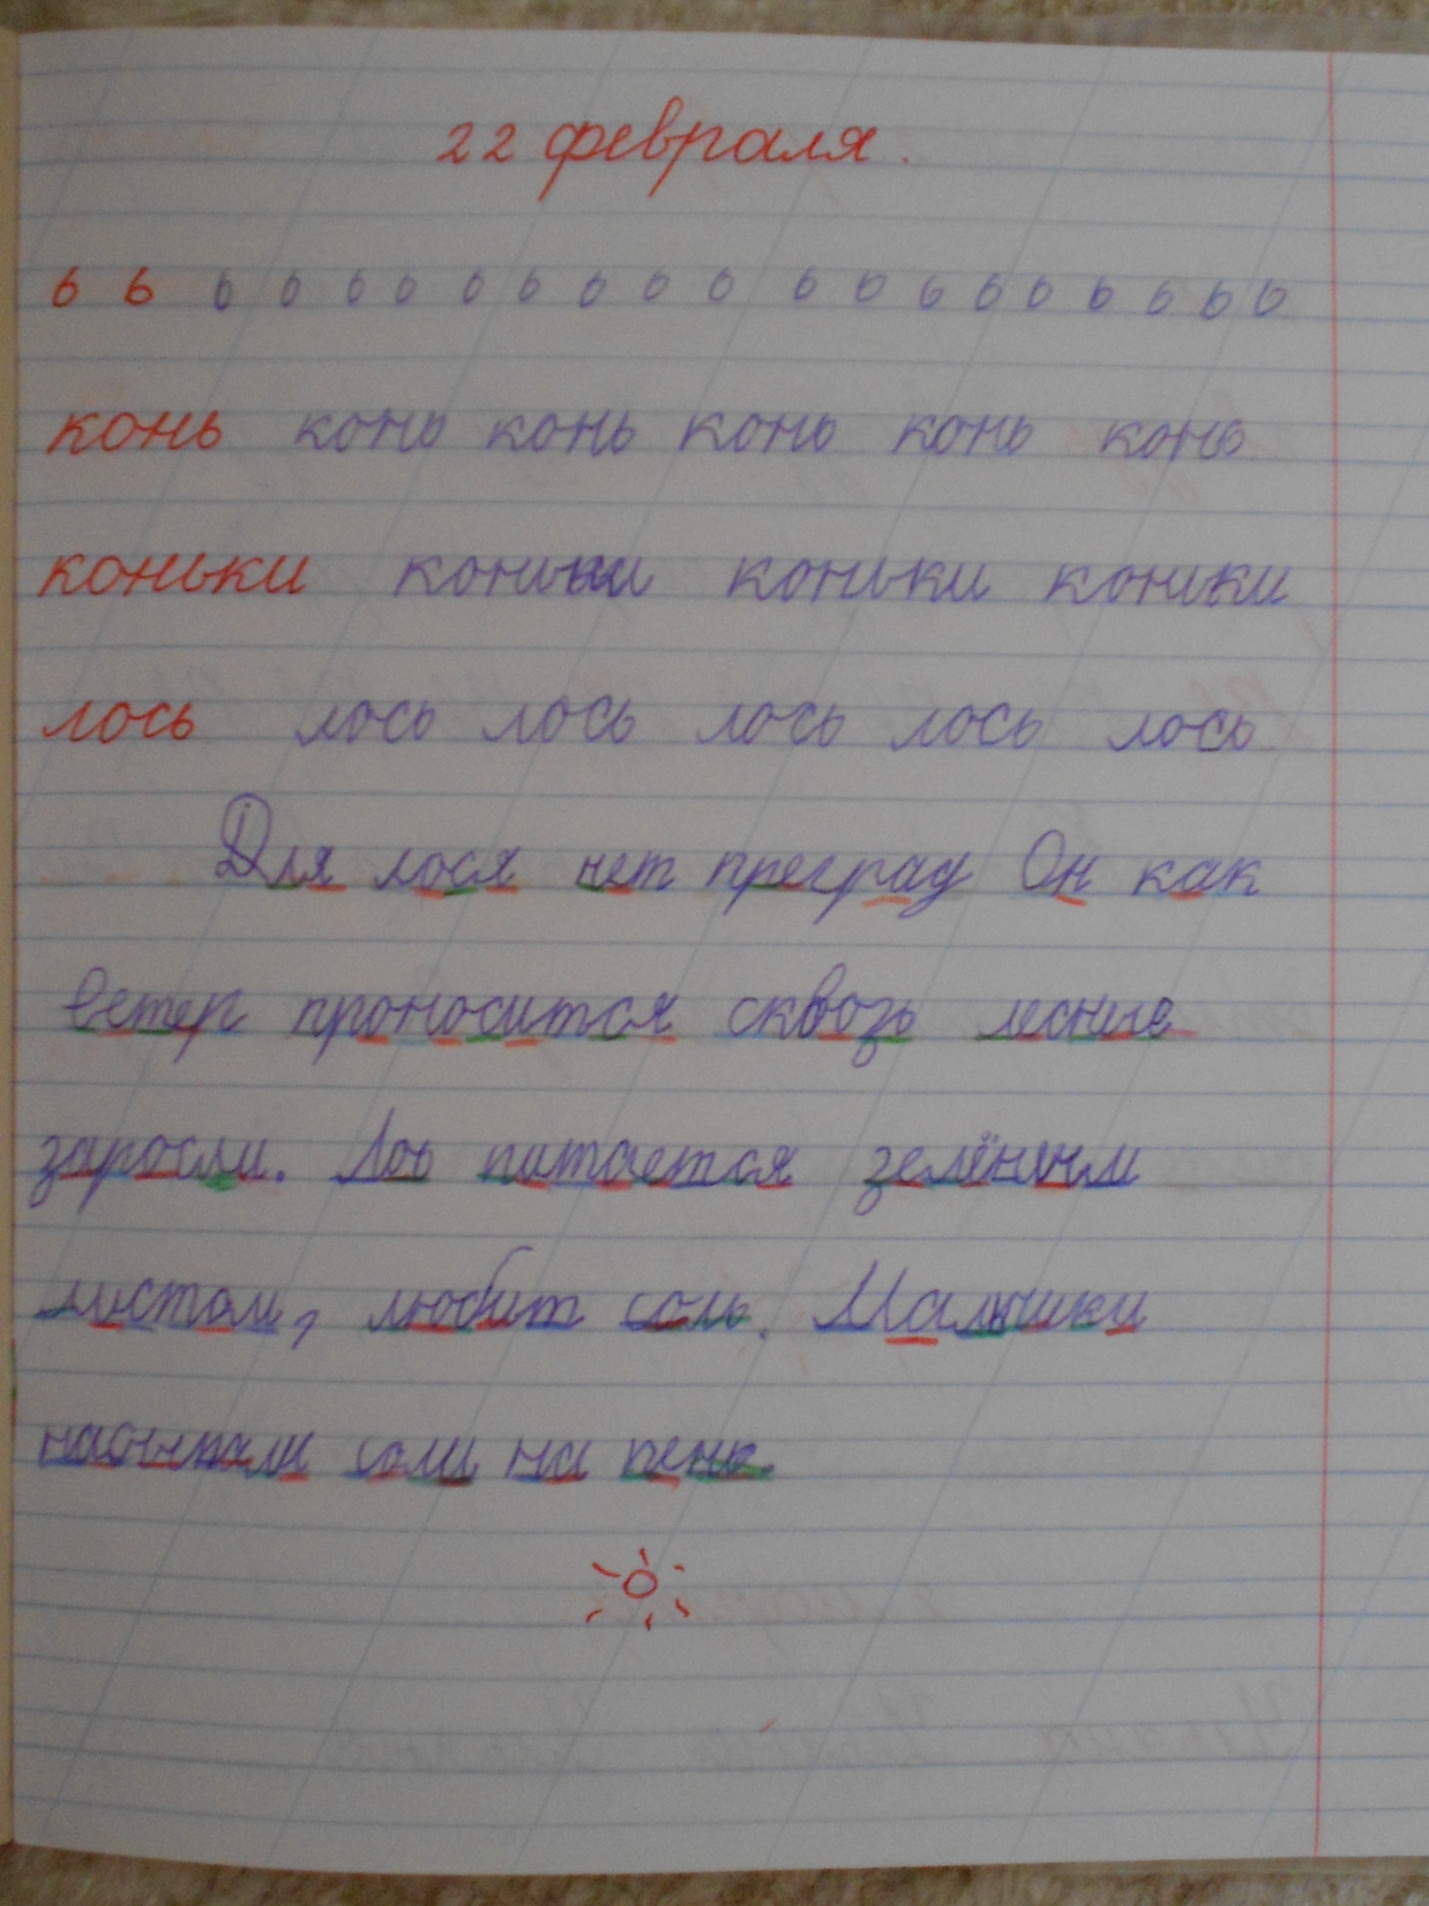 22 февраля.
ь ь ь ь ь ь ь ь ь ь ь ь ь ь ь ь ь ь ь ь
конь конь конь конь конь конь
коньки коньки коньки коньки
лось лось лось лось лось лось
Для лося нет преград Он как
ветер проносится сквозь лесные
заросли. Лоь питается зелёным
листом, любит соль. Малышки
насыпали соли на пенк.